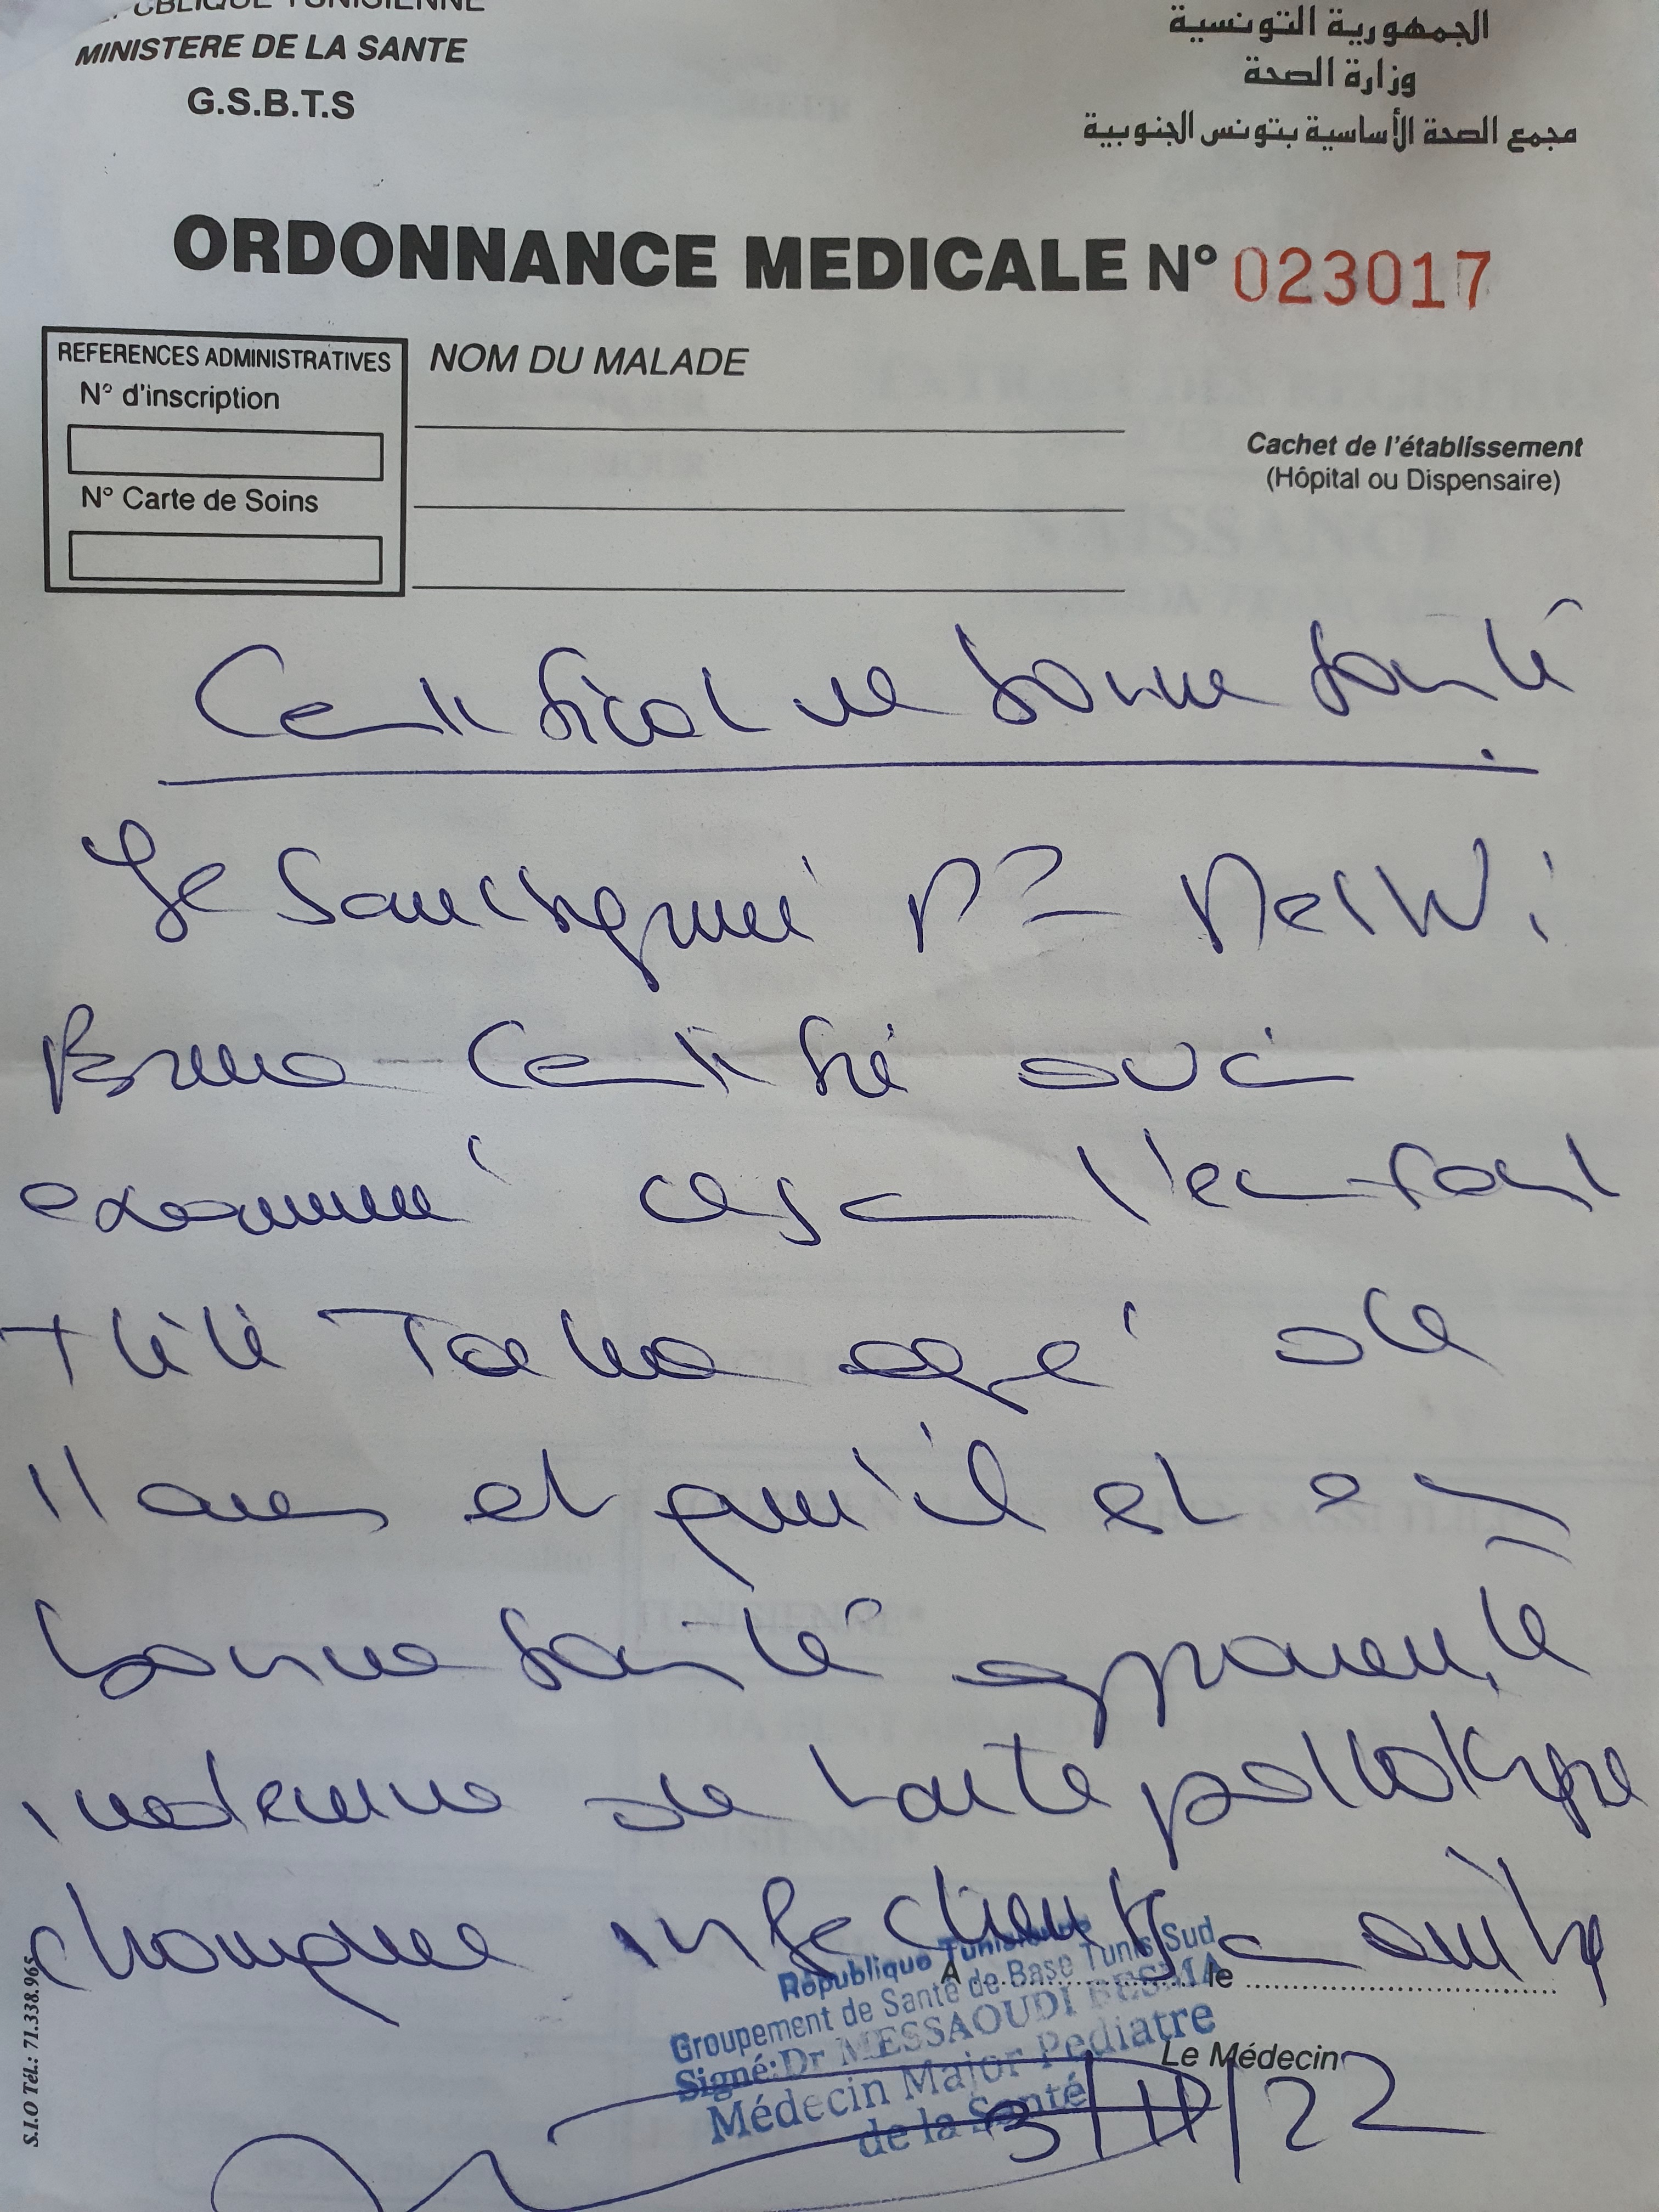 REPUBLIQUE TUNISIENNE
MINISTERE DE LA SANTE
G.S.B.T.S
الجمهورية التونسية
وزارة الصحة
مجمع الصحة الأساسية بتونس الجنوبية
ORDONNANCE MEDICALE N° 023017
REFERENCES ADMINISTRATIVES
N° d'inscription
N° Carte de Soins
NOM DU MALADE
Cachet de l'établissement
(Hôpital ou Dispensaire)
Certificat de bonne santé
Je soussigné Dr
certifie avoir
examiné ce jour l'enfant
Tlili Taha agé de
11 ans et qu'il est en
bonne santé apparente
indemne de toute pathologie
chronique infectieuse
République Tunisienne
Groupement de Santé de Base Tunis Sud
Signé: Dr MESSAOUDI BESMA
Médecin Major Pédiatre
de la Santé
A le
Le Médecin
3/11/22
S.I.O Tél.: 71.338.965